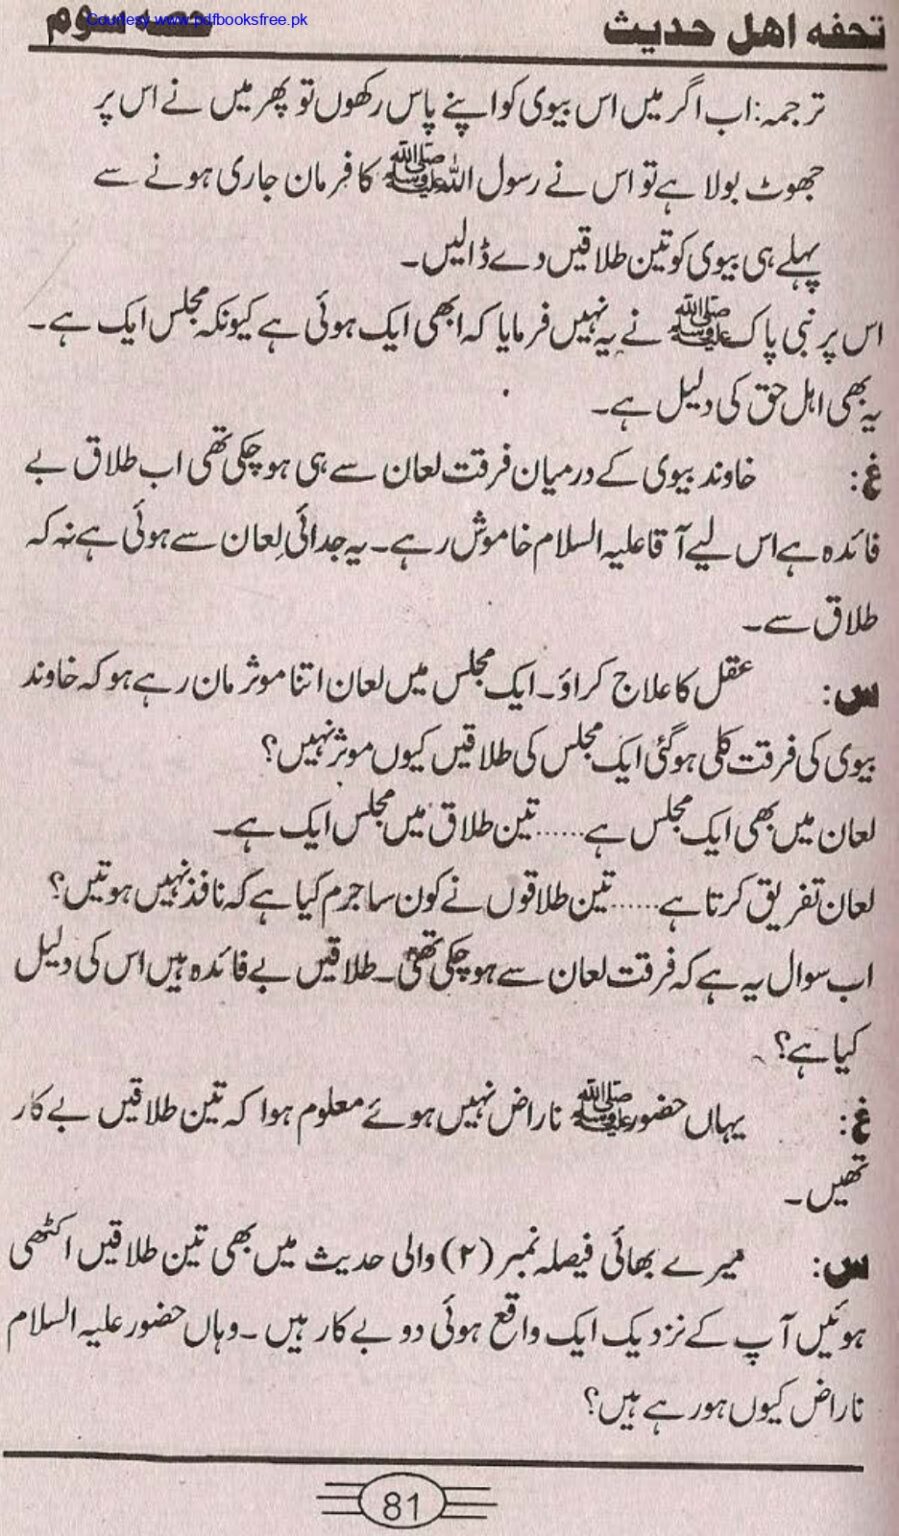 Courtesy www.pdfbooksfree.pk
تحفه اهل حدیث حصه سوم
ترجمہ: اب اگر میں اس بیوی کو اپنے پاس رکھوں تو پھر میں نے اس پر
جھوٹ بولا ہے تو اس نے رسول اللہ ﷺ کا فرمان جاری ہونے سے
پہلے ہی بیوی کو تین طلاقیں دے ڈالیں۔
اس پر نبی پاک ﷺ نے یہ نہیں فرمایا کہ ابھی ایک ہوئی ہے کیونکہ مجلس ایک ہے۔
یہ بھی اہل حق کی دلیل ہے۔
غ: خاوند بیوی کے درمیان فرقت لعان سے ہی ہو چکی تھی اب طلاق بے
فائدہ ہے اس لیے آقا علیہ السلام خاموش رہے۔ یہ جدائی لِعان سے ہوئی ہے نہ کہ
طلاق سے۔
س: عقل کا علاج کراؤ۔ ایک مجلس میں لعان اتنا موثر مان رہے ہو کہ خاوند
بیوی کی فرقت کلی ہوگئی ایک مجلس کی طلاقیں کیوں موثر نہیں؟
لعان میں بھی ایک مجلس ہے ...... تین طلاق میں مجلس ایک ہے۔
لعان تفریق کرتا ہے ...... تین طلاقوں نے کون سا جرم کیا ہے کہ نافذ نہیں ہوتیں؟
اب سوال یہ ہے کہ فرقت لعان سے ہو چکی تھی۔ طلاقیں بے فائدہ ہیں اس کی دلیل
کیا ہے؟
غ: یہاں حضور ﷺ ناراض نہیں ہوئے معلوم ہوا کہ تین طلاقیں بے کار
تھیں۔
س: میرے بھائی فیصلہ نمبر (۲) والی حدیث میں بھی تین طلاقیں اکٹھی
ہوئیں آپ کے نزدیک ایک واقع ہوئی دو بے کار ہیں۔ وہاں حضور علیہ السلام
ناراض کیوں ہو رہے ہیں؟
81